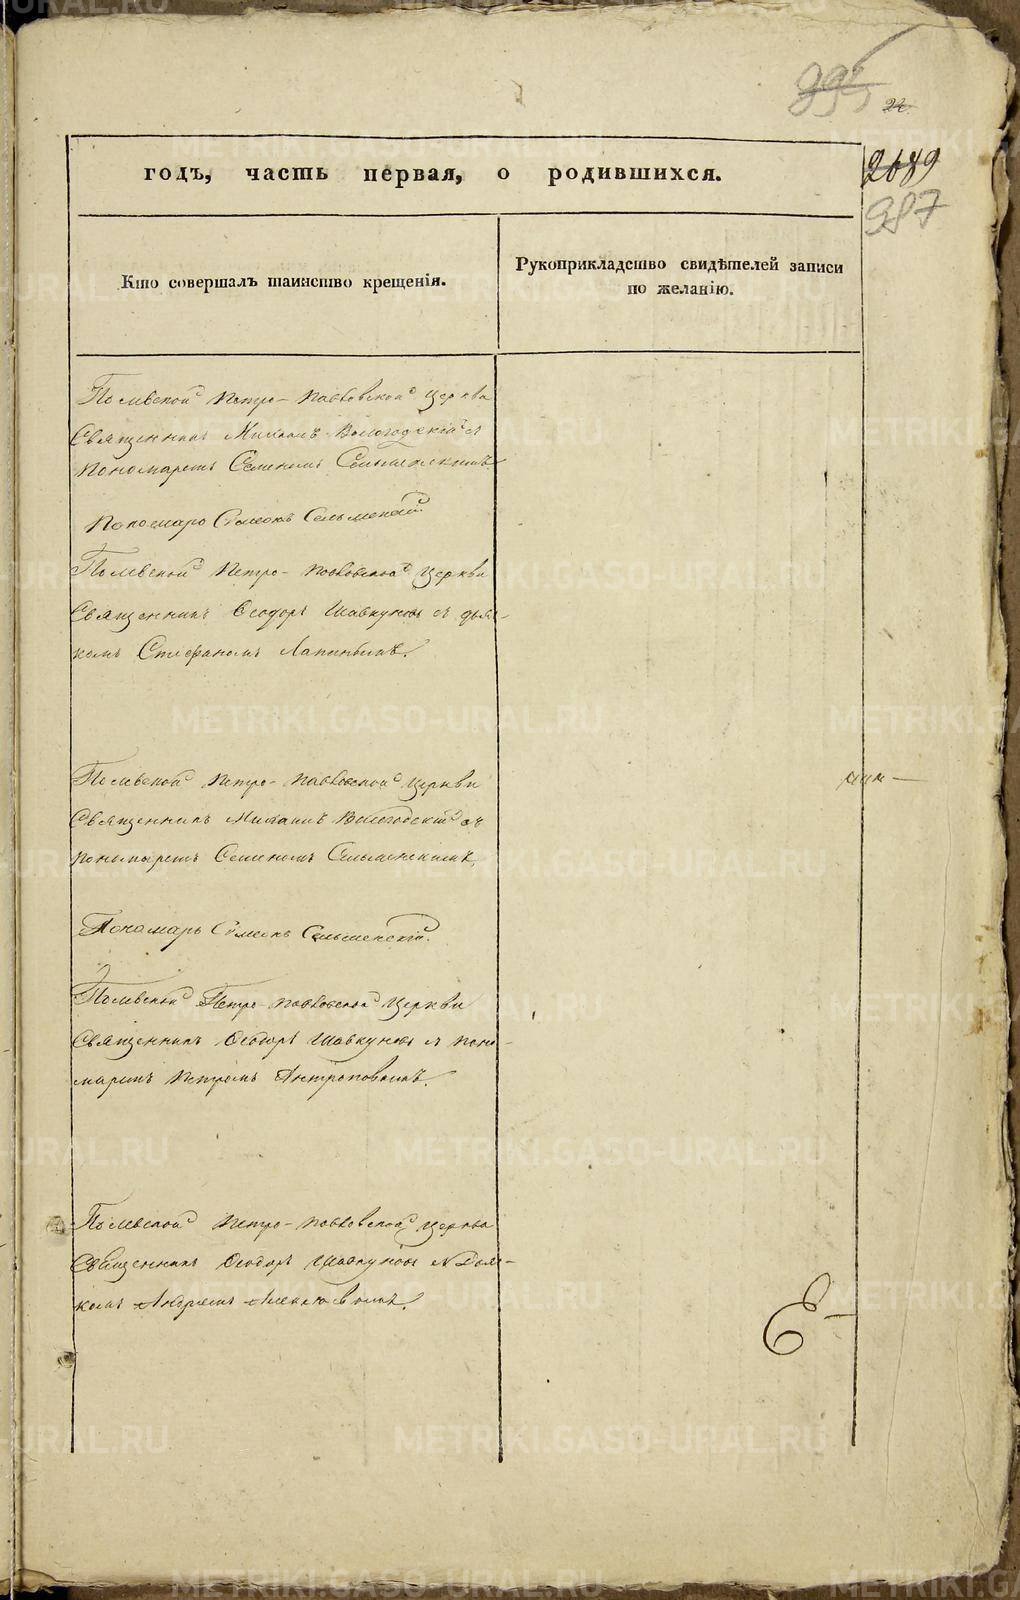 995
22.
2689
987
годъ, часть первая, о родившихся.
Кто совершалъ таинство крещенія.
Рукоприкладство свидѣтелей записи
по желанію.
Полевской Петро-Павловской Церкви
Священникъ Михаилъ Вологодскій съ
пономаремъ Семеномъ Сельменскимъ
Пономарь Симеонъ Сельменскій
Полевской Петро-Павловской Церкви
Священникъ Ѳеодоръ Шавкуновъ съ дьяч-
комъ Стефаномъ Лапинымъ.
Полевской Петро-Павловской Церкви
Священникъ Михаилъ Вологодскій съ
пономаремъ Семеномъ Сельменскимъ.
Пономарь Симеонъ Сельменскій.
Полевской Петро-Павловской Церкви
Священникъ Ѳеодоръ Шавкуновъ съ поно-
маремъ Петромъ Антроповымъ.
Полевской Петро-Павловской Церкви
Священникъ Ѳеодоръ Шавкуновъ
комъ Андреемъ
METRIKI.GASO-URAL.RU